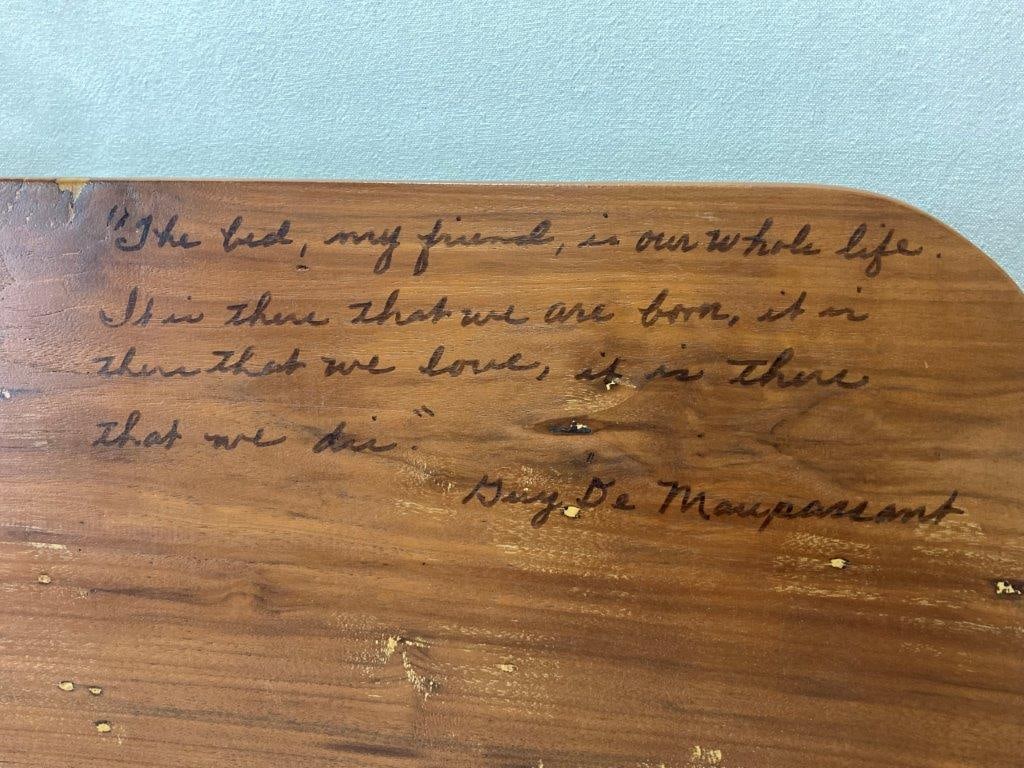 "The bed, my friend, is our whole life.
It is there that we are born, it is
there that we love, it is there
that we die."
Guy De Maupassant